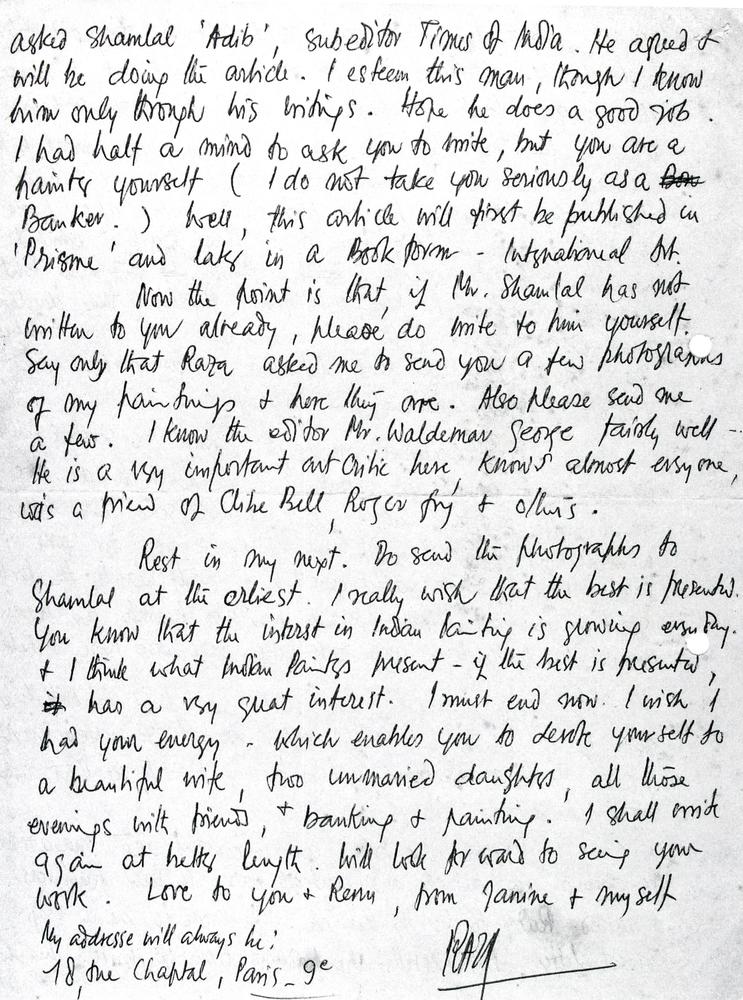 asked Shamlal 'Adib', subeditor Times of India. He agreed &
will be doing the article. I esteem this man, though I know
him only through his writings. Hope he does a good job.
I had half a mind to ask you to write, but you are a
painter yourself ( I do not take you seriously as a
Banker. ) Well, this article will first be published in
'Prisme' and later in a Book form - International Art.
Now the point is that, if Mr. Shamlal has not
written to you already, please do write to him yourself.
Say only that Raza asked me to send you a few photographs
of my paintings & here they are. Also please send me
a few. I know the editor Mr. Waldemar George fairly well -
He is a very important art Critic here, knows almost everyone,
was a friend of Clive Bell, Roger fry & others.
Rest in my next. Do send the photographs to
Shamlal at the erliest. I really wish that the best is presented.
You know that the interest in Indian Painting is growing everyday.
& I think what Indian Painters present - if the best is presented,
has a very great interest. I must end now. I wish I
had your energy - which enables you to devote yourself to
a beautiful wife, two unmarried daughters, all those
evenings with friends, & banking & painting. I shall write
again at better length. Will look forward to seeing your
work. Love to you & Renu, from Janine & myself
My addresse will always be:
18, rue Chaptal, Paris - 9e
RAZA